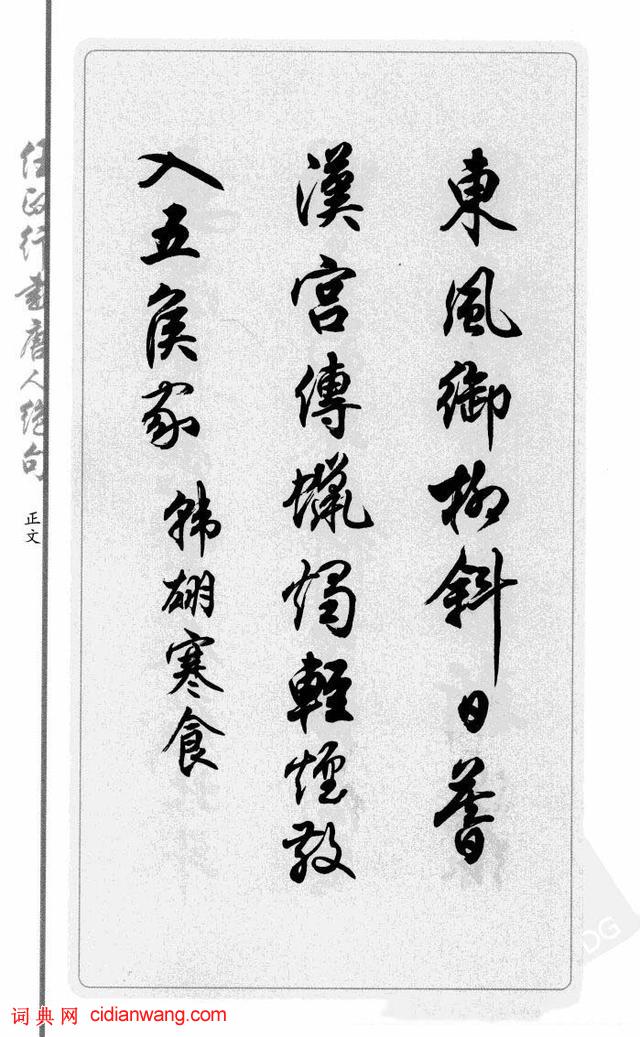 東風御柳斜日暮
漢宮傳蠟燭輕煙散
入五侯家 韩翃寒食
任政行書唐人絕句
正文
词典网 cidianwang.com
DG